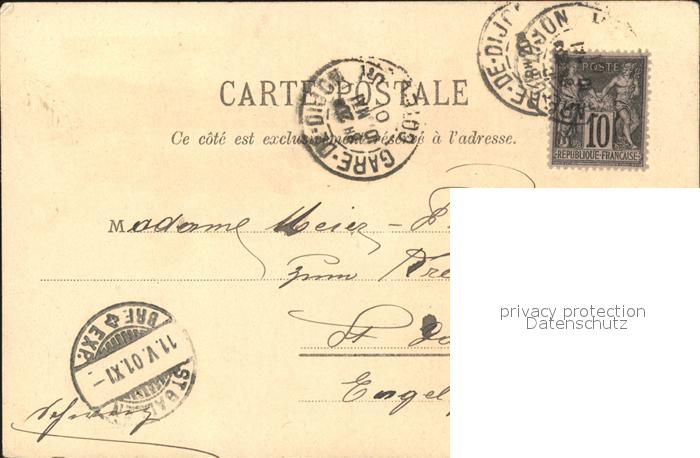 CARTE POSTALE
Ce côté est exclusivement réservé à l'adresse.
GARE-DE-DIJON
GARE-DE-DIJON
POSTE
10
REPUBLIQUE FRANÇAISE
Madame Meier-
zum
St.
Engel
BRF EXP.
11.V.01.XI-
ST GALLEN
Schweiz
privacy protection
Datenschutz